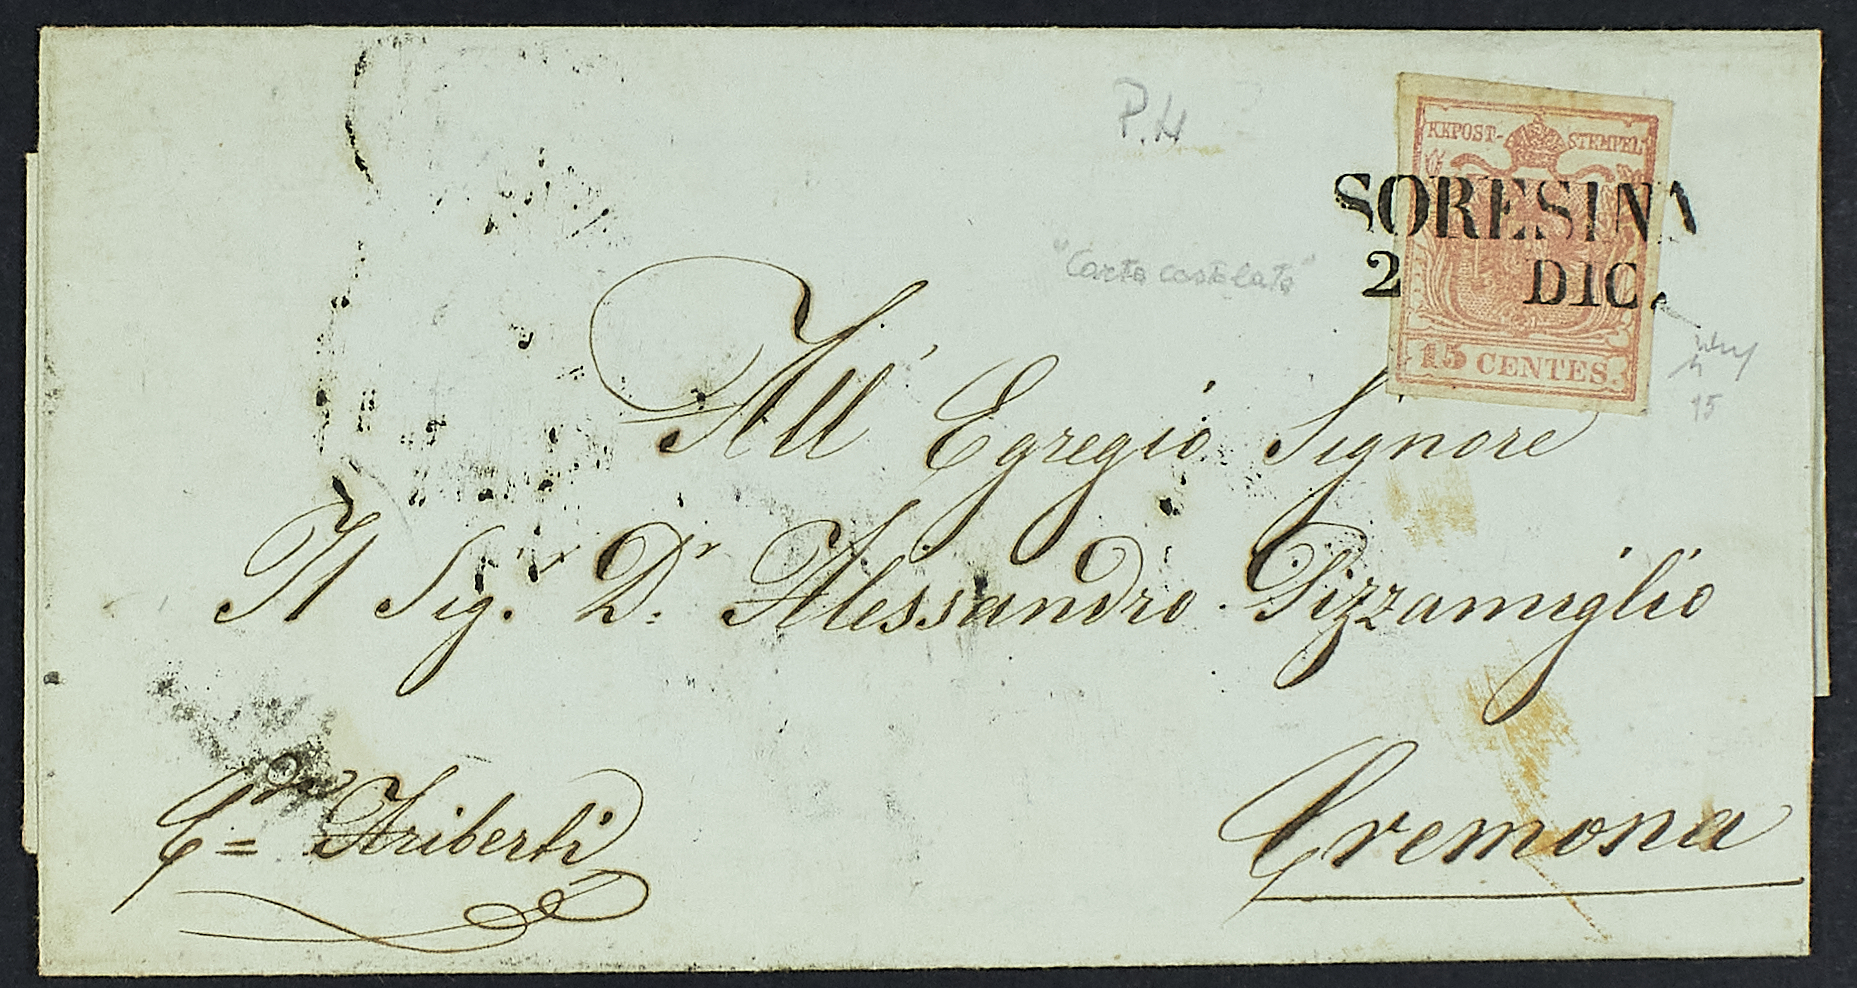 P.H
KKPOST-STEMPEL
SORESINA
2 DIC.
15 CENTES.
"Carta costolata"
15
All' Egregio Signore
Il Sig.r D.r Alessandro Pizzamiglio
Cremona
Ariberti